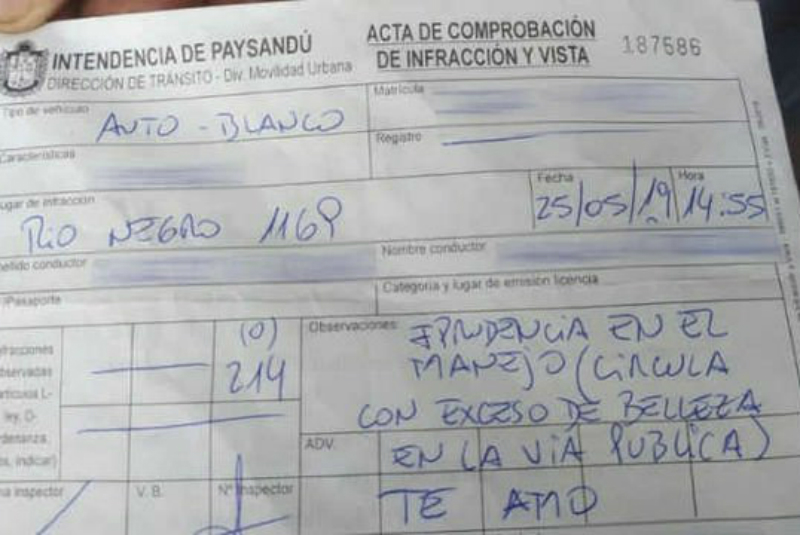 INTENDENCIA DE PAYSANDÚ
DIRECCIÓN DE TRÁNSITO - Div. Movilidad Urbana
ACTA DE COMPROBACIÓN
DE INFRACCIÓN Y VISTA
187686
Tipo de vehículo
AUTO - BLANCO
Matrícula
Características
Registro
Lugar de infracción
RIO NEGRO 1169
Fecha
25/05/19
Hora
14:55
ellido conductor
Nombre conductor
/Pasaporte
Categoría y lugar de emisión licencia
fracciones
bservadas
rtículos L-
ley, D-
denanza,
os, indicar)
(0)
214
Observaciones:
IPRUDENCIA EN EL
MANEJO (CIRCULA
CON EXCESO DE BELLEZA
EN LA VIA PUBLICA)
TE AMO
ADV.
ma inspector
V. B.
Nº Inspector